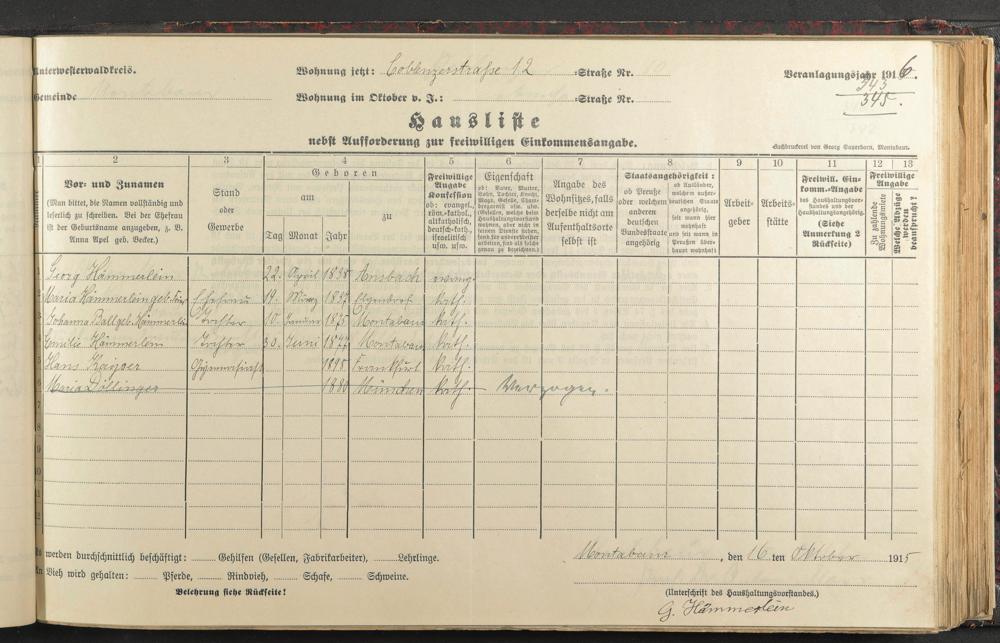 Unterwesterwaldkreis.
Wohnung jetzt: Coblenzerstraße 12 Straße Nr.
Veranlagungsjahr 1916.
Gemeinde
Wohnung im Oktober v. J.: Straße Nr.
345.
Hausliste
nebst Aufforderung zur freiwilligen Einkommensangabe.
Buchdruckerei von Georg Sauerborn, Montabaur.
1 2 3 4 5 6 7 8 9 10 11 12 13
Vor- und Zunamen
(Man bittet, die Namen vollständig und
leserlich zu schreiben. Bei der Ehefrau
ist der Geburtsname anzugeben, z. B.
Anna Apel geb. Becker.)
Stand
oder
Gewerbe
Geboren
am
zu
Tag Monat Jahr
Freiwillige
Angabe
Konfession
ob: evangel.,
röm.-kathol.,
altkatholisch,
deutsch-kath.,
israelitisch
usw. usw.
Eigenschaft
Angabe des
Wohnsitzes, falls
derselbe nicht am
Aufenthaltsorte
selbst ist
Staatsangehörigkeit:
ob Preuße
oder welchem
anderen
deutschen
Bundesstaate
angehörig
ob Ausländer,
welchem außer-
deutschen Staate
angehörig,
seit wann hier
wohnhaft
und seit wann in
Preußen über-
haupt wohnhaft
Arbeit-
geber
Arbeits-
stätte
Freiwill. Ein-
komm.-Angabe
des Haushaltungsvor-
standes und der
Haushaltungsangehörig.
(Siehe
Anmerkung 2
Rückseite)
Freiwillige
Angabe
Zu zahlende
Wohnungsmiete
Welche Abzüge
werden
beansprucht?
Georg Hämmerlein 22. April 1838 Ansbach evang.
Maria Hämmerlein geb. Ehefrau 19. März 1837 kath.
Johanna Ball geb. Hämmerlein Tochter 10. Januar 1875 Montabaur kath.
Emilie Hämmerlein Tochter 30. Juni 1877 Montabaur kath.
Hans Kayser Gymnasiast 1898 Frankfurt kath.
Maria Döllinger 1880 München kath. Verzogen.
7
8
9
10
11
12
Es werden durchschnittlich beschäftigt: Gehilfen (Gesellen, Fabrikarbeiter), Lehrlinge.
Montabaur, den 16 ten Oktober 1915
An Vieh wird gehalten: Pferde, Rindvieh, Schafe, Schweine.
Belehrung siehe Rückseite!
(Unterschrift des Haushaltungsvorstandes.)
G. Hämmerlein